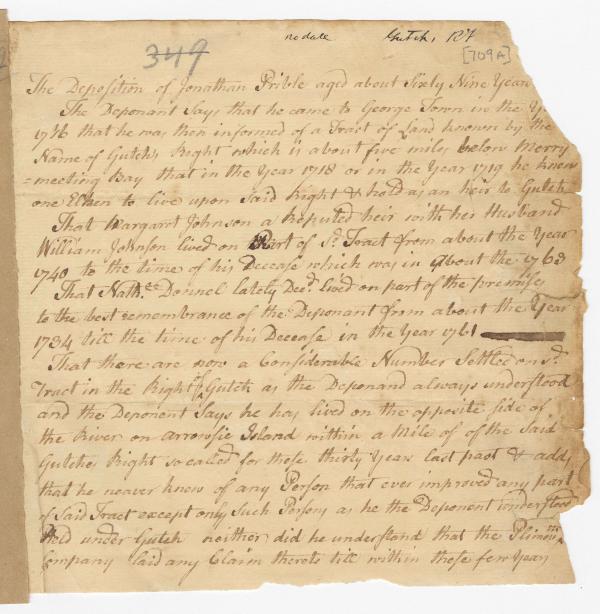 no date Gutch,
349
[709A]
The Deposition of Jonathan Prible aged about Sixty Nine Year
The Deponant Says that he came to George Town in the Y
1716 that he was then informed of a Tract of Landknown by the
Name of Gutch's Right which is about five miles below Merry
=meeting Bay that in the Year 1718 or in the Year 1719 he knew
one to live upon Said Right & hold as an heir to Gutch
That Margarat Johnson a Reputed heir with her Husband
William Johnson lived on Part of Sd. Tract from about the Year
1740 to the time of his Decease which was in about the
That Nath.ll Donnel lately Decd. lived on part of the premises
to the best remembrance of the Deponant from about the Year
1734 till the time of his Decease in the Year 1761
That there are now a Considerable Number Settled on sd.
Tract in the Right of Gutch as the Deponand always understood
and the Deponent Says he has lived on the opposite side of
the River on arrowsic Island within a Mile of of the Said
Gutches Right so called for these thirty Years last past & adds
that he neaver knew of any Person that ever improved any part
of Said Tract except only Such Persons as he the Deponent understood
held under Gutch neither did he understand that the
Company laid any Claim thereto till within these few Years